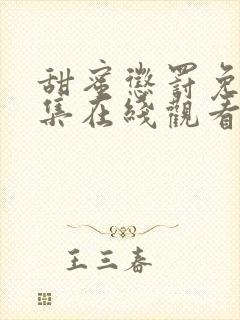 甜蜜懲罰免
集在綫觀看
王三春